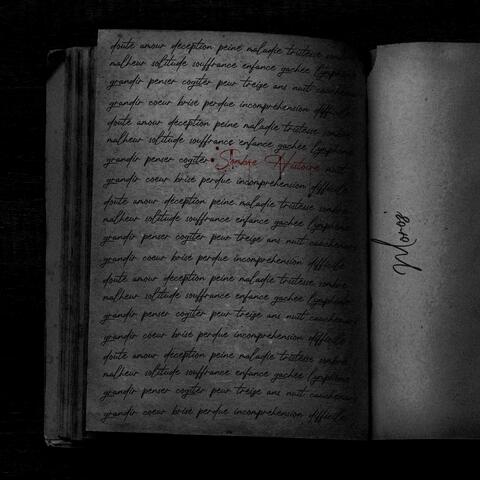 doute amour déception peine maladie tristesse sombre
malheur solitude souffrance enfance gachée lymphome
grandir penser cogiter peur treize ans nuit
grandir coeur brisé perdue incomprehension difficile
doute amour déception peine maladie tristesse
malheur solitude souffrance enfance gachée lymphome
grandir penser cogiter Sombre Histoire nuit
grandir coeur brisé perdue incomprehension difficile
doute amour déception peine maladie tristesse sombre
malheur solitude souffrance enfance gachée lymphome
grandir penser cogiter peur treize ans nuit cauchemar
grandir coeur brisé perdue incomprehension difficile
doute amour déception peine maladie tristesse sombre
malheur solitude souffrance enfance gachée lymphome
grandir penser cogiter peur treize ans nuit cauchemar
grandir coeur brisé perdue incomprehension difficile
doute amour déception peine maladie tristesse sombre
malheur solitude souffrance enfance gachée lymphome
grandir penser cogiter peur treize ans nuit cauchemar
grandir coeur brisé perdue incomprehension difficile